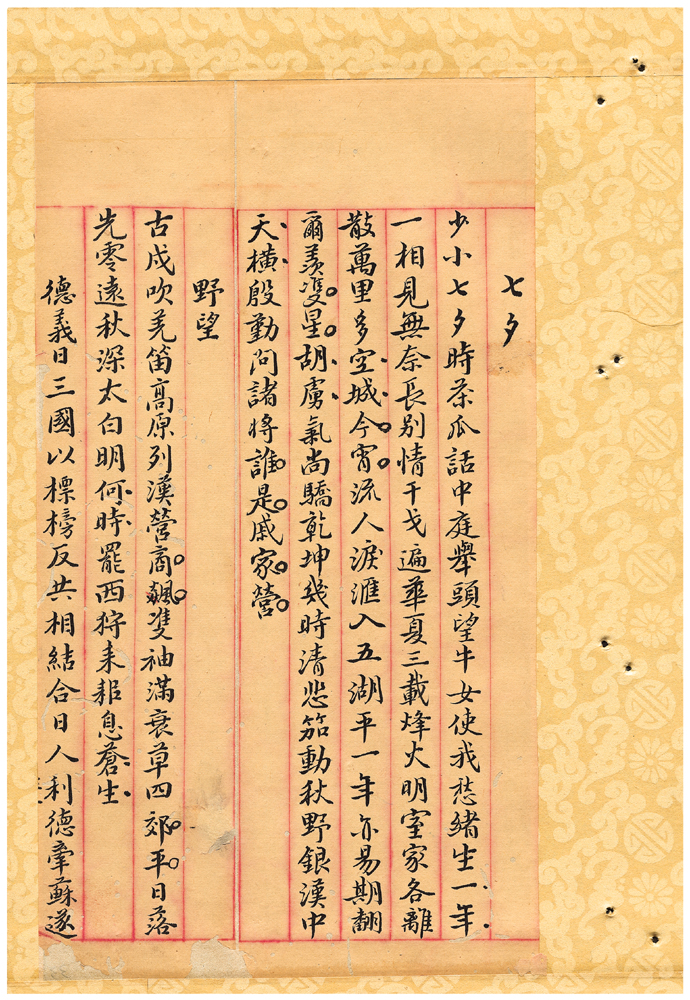 七夕
少小七夕時茶瓜話中庭舉頭望牛女使我愁緒生一年
一相見無奈長别情干戈遍華夏三載烽火明室家各離
散萬里多空城今宵流人淚滙入五湖平一年亦易期翻
爾羨雙星胡虜氣尚驕乾坤幾時清悲笳動秋野銀漢中
天橫殷勤問諸將誰是戚家營
野望
古戍吹羌笛高原列漢營商飆雙袖滿衰草四郊平日落
先零遠秋深太白明何時罷西狩耒耜息蒼生
德義日三國以標榜反共相結合日人利德牽蘇遂